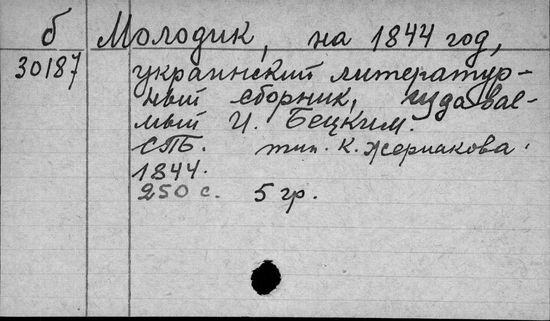 б Молодик, на 1844 год,
30187 украинский литератур-
ный сборник, издавае-
мый И. Бецким.
СПБ. тип. К. Жернакова.
1844.
250 с. 5 гр.